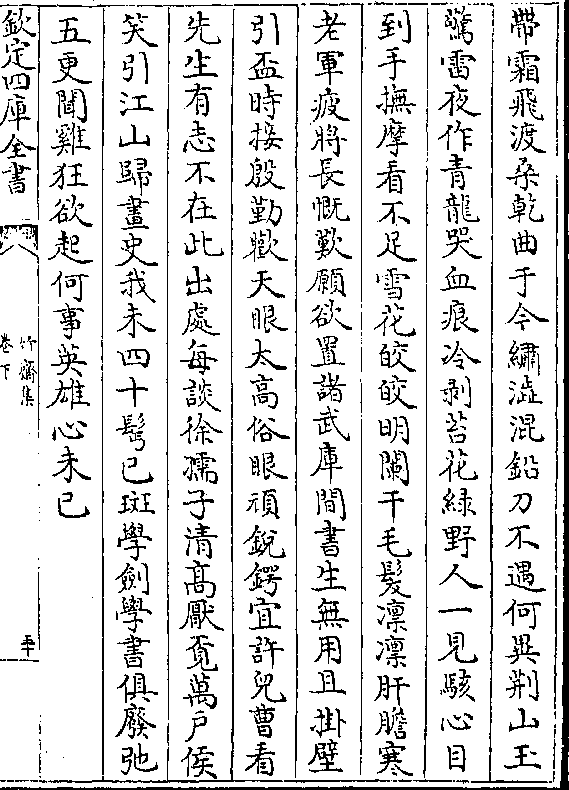 帶霜飛渡桑乾曲于今繡澁混鉛刀不遇何異荆山玉
驚雷夜作青龍哭血痕冷剥苔花緑野人一見駭心目
到手撫摩看不足雪花皎皎明闌干毛髮凛凛肝膽寒
老軍疲將長慨歎願欲置諸武庫間書生無用且掛壁
引盃時接殷勤歡天眼太高俗眼頑銳鍔宜許兒曹看
先生有志不在此出處每談徐孺子清髙厭覔萬戶侯
笑引江山歸畫史我未四十髩已斑學劍學書俱廢弛
五更聞雞狂欲起何事英雄心未已
欽定四庫全書
竹齋集
卷下